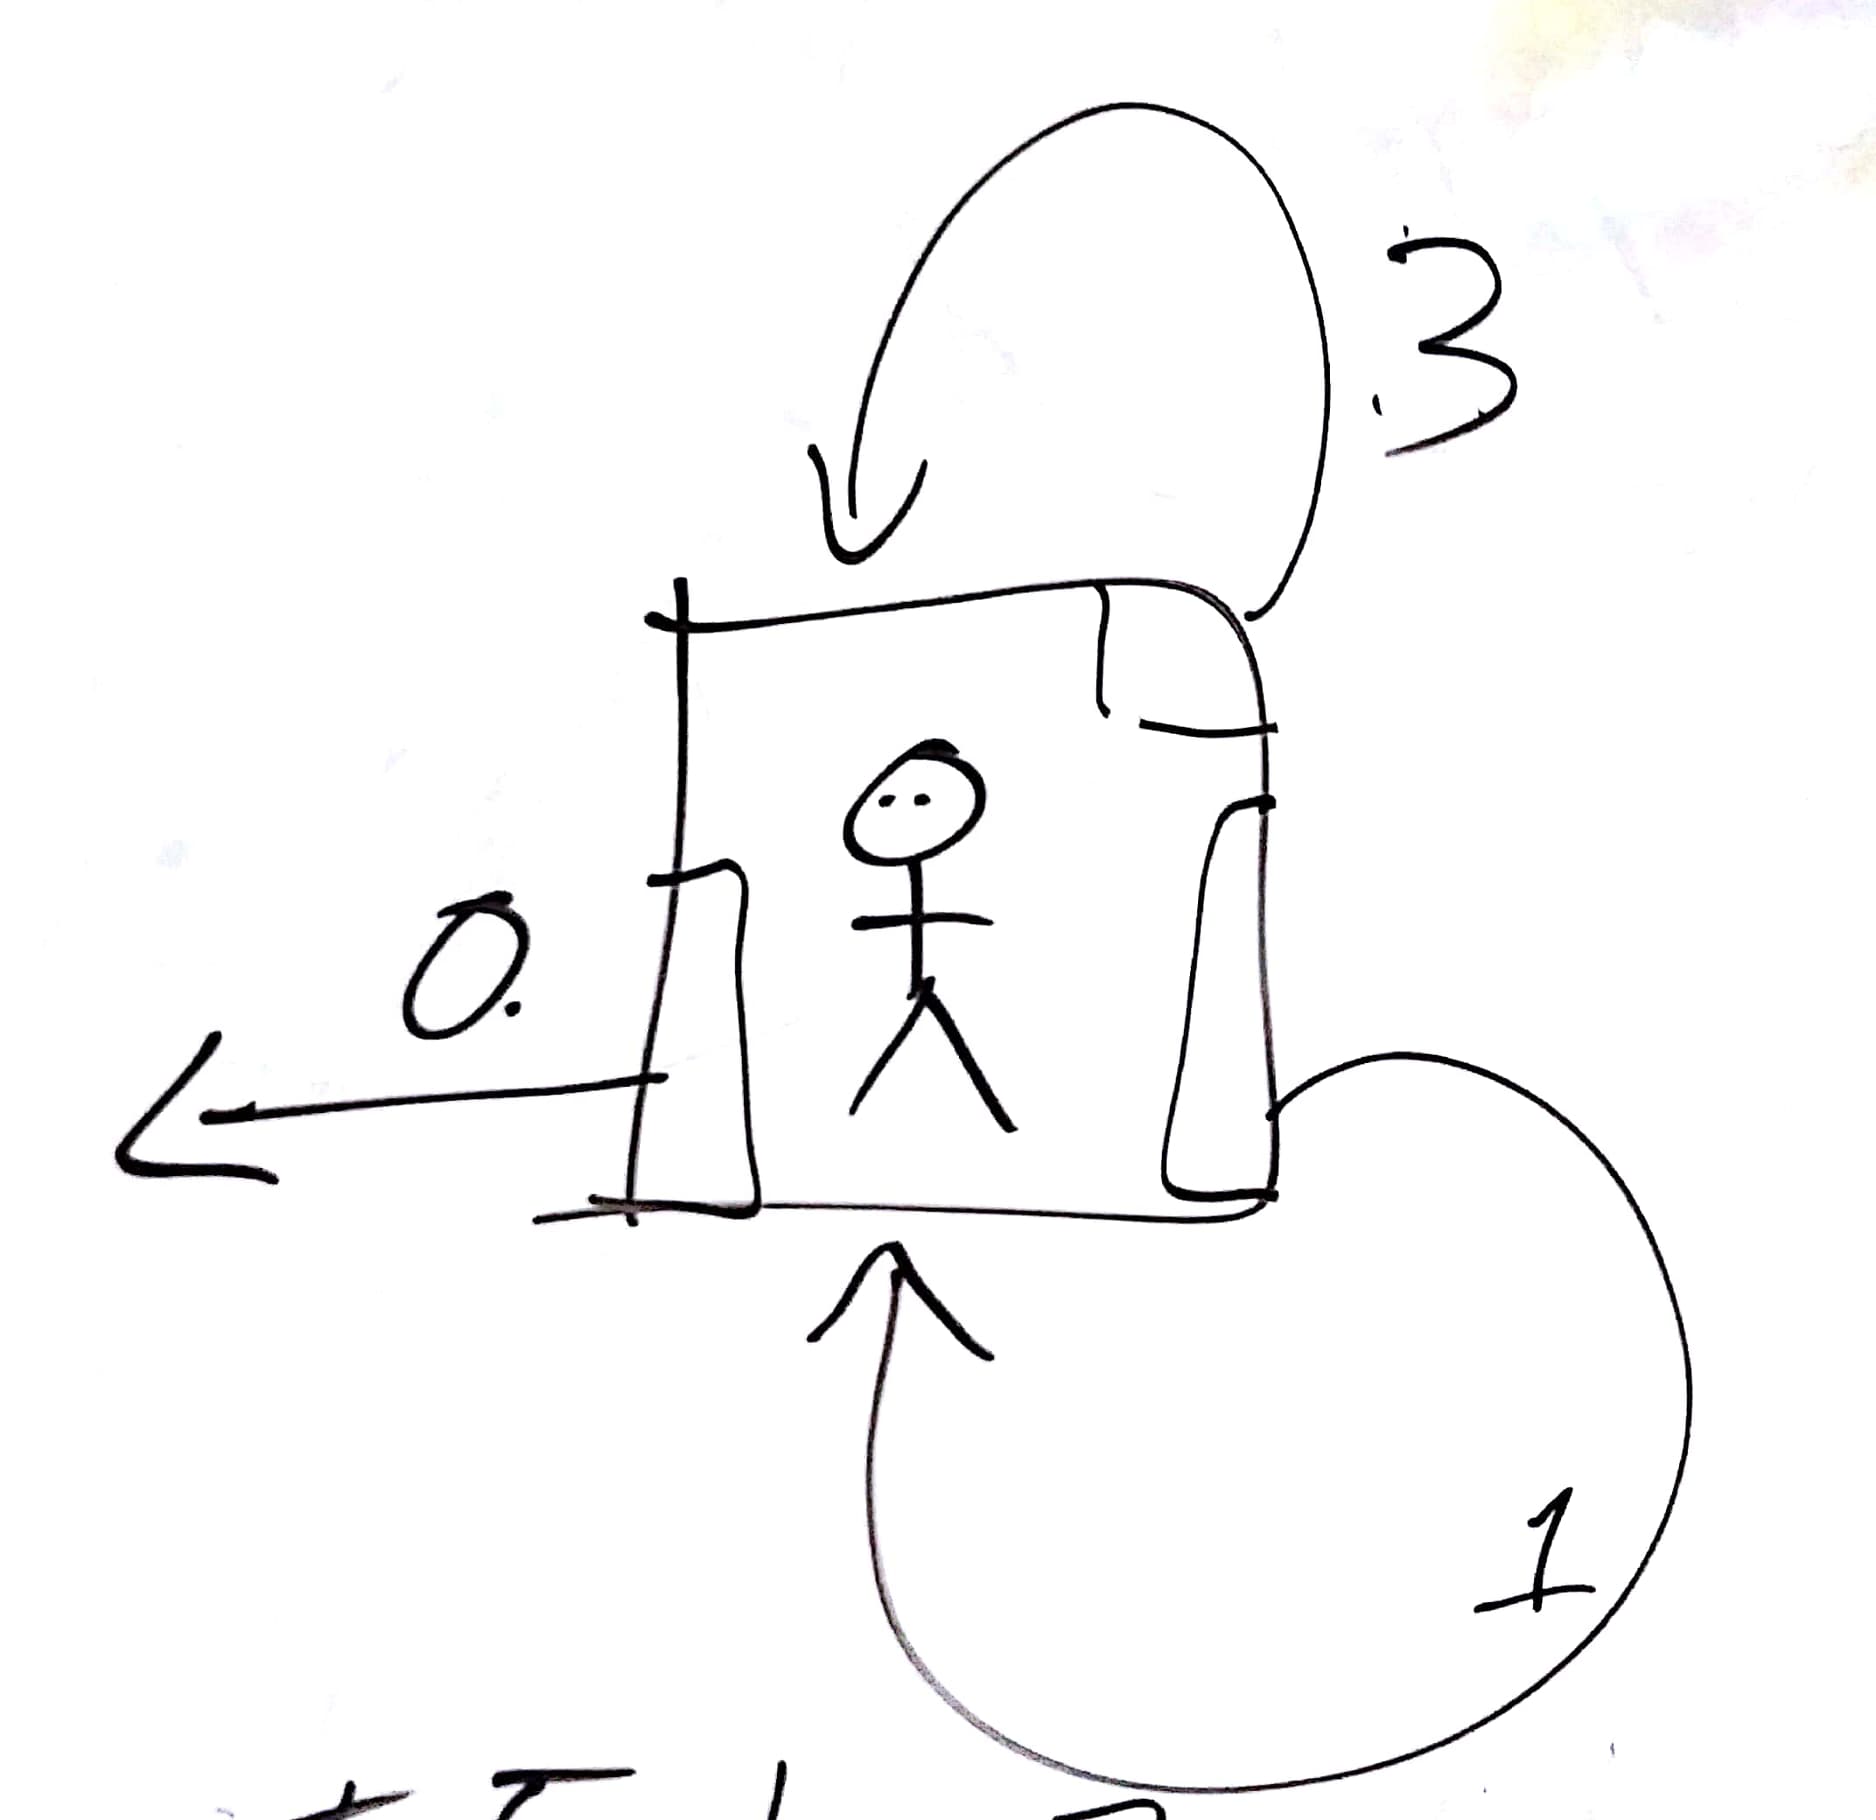 3
0.
1